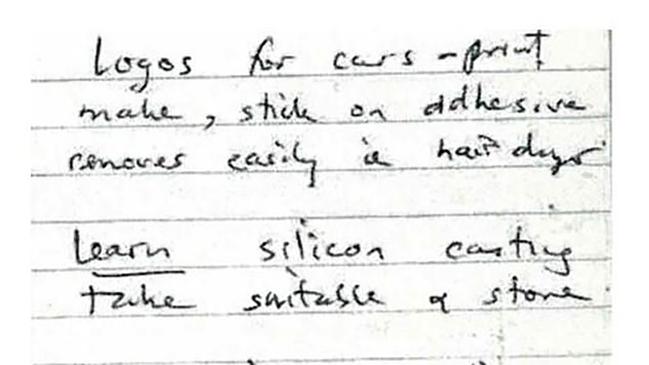 Logos for cars - print
make, stick on adhesive
removes easily ie hair dryer
Learn silicon casting
take suitable & stone